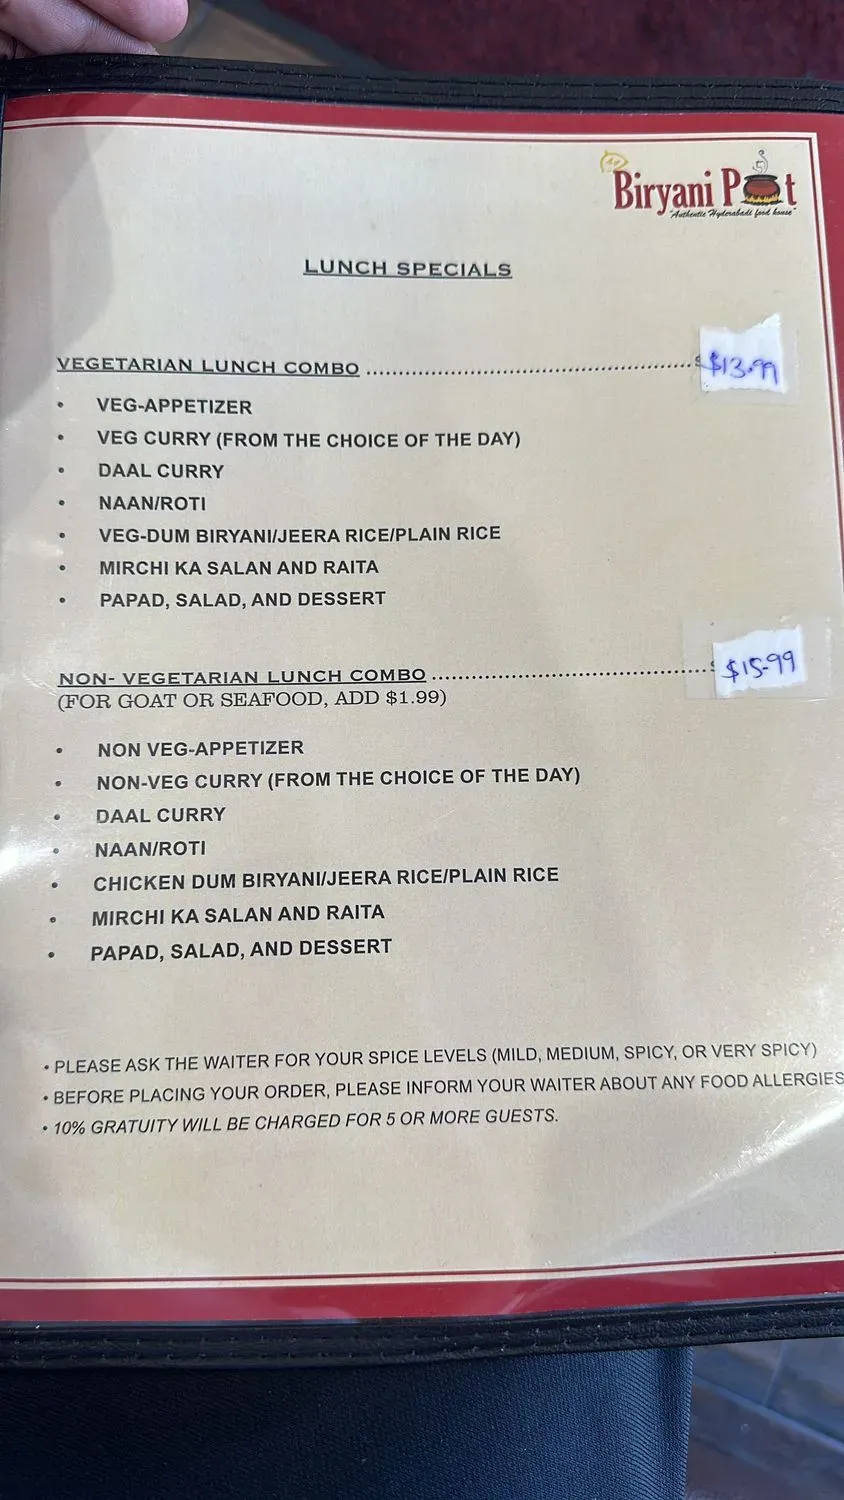 Biryani Pot
"Authentic Hyderabadi food house"
LUNCH SPECIALS
VEGETARIAN LUNCH COMBO ........................................................ $13.99
• VEG-APPETIZER
• VEG CURRY (FROM THE CHOICE OF THE DAY)
• DAAL CURRY
• NAAN/ROTI
• VEG-DUM BIRYANI/JEERA RICE/PLAIN RICE
• MIRCHI KA SALAN AND RAITA
• PAPAD, SALAD, AND DESSERT
NON- VEGETARIAN LUNCH COMBO ............................................... $15.99
(FOR GOAT OR SEAFOOD, ADD $1.99)
• NON VEG-APPETIZER
• NON-VEG CURRY (FROM THE CHOICE OF THE DAY)
• DAAL CURRY
• NAAN/ROTI
• CHICKEN DUM BIRYANI/JEERA RICE/PLAIN RICE
• MIRCHI KA SALAN AND RAITA
• PAPAD, SALAD, AND DESSERT
• PLEASE ASK THE WAITER FOR YOUR SPICE LEVELS (MILD, MEDIUM, SPICY, OR VERY SPICY)
• BEFORE PLACING YOUR ORDER, PLEASE INFORM YOUR WAITER ABOUT ANY FOOD ALLERGIES
• 10% GRATUITY WILL BE CHARGED FOR 5 OR MORE GUESTS.